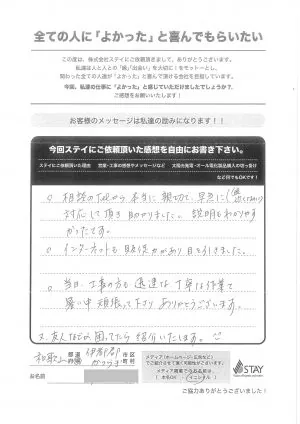 全ての人に「よかった」と喜んでもらいたい
この度は、株式会社ステイにご依頼頂きまして、ありがとうございます。
私達は人と人との「縁」「出会い」を大切に！をモットーとし、
関わった全ての人達が「よかった」と喜んで頂ける会社を目指しています。
今回、私達の仕事に「よかった」と感じていただけましたでしょうか？
ご感想をお願いいたします！
お客様のメッセージは私達の励みになります！！
今回ステイにご依頼頂いた感想を自由にお書き下さい。
ステイにご依頼頂いた理由 営業・工事の感想やメッセージなど 太陽光発電・オール電化製品購入の切っ掛け
など何でもOKです！
相談のTELから本当に親切で、早急に
対応して頂き助かりました。説明もわかりやす
かったです。
インターネットも
当日、工事の方も迅速な丁寧な作業で
暑い中頑張って下さりありがとうございます。
又、友人などが困ってたら紹介いたします。
和歌山 都道府県 伊都郡 かつらぎ 市区町村
お名前
メディア（ホームページ・広告など）
でご紹介させて頂く可能性がございます。
メディア掲載でのお名前は、
（本名OK イニシャル）
STAY
ご協力ありがとうございました！